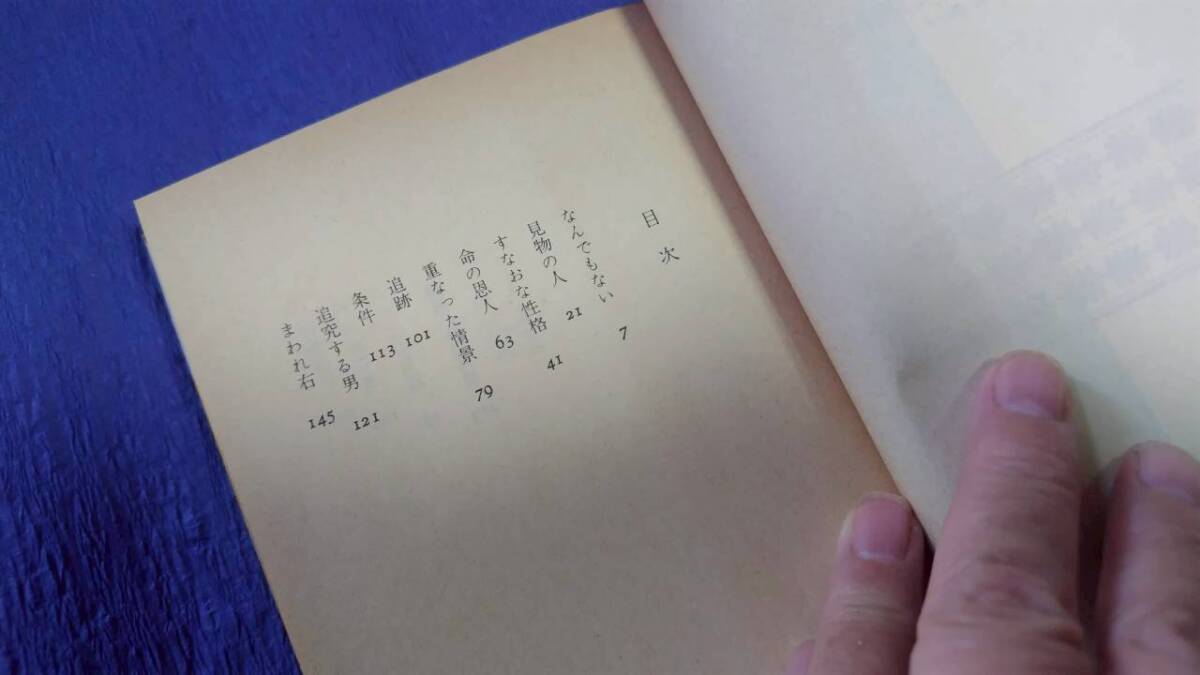 目次
なんでもない 7
見物の人 21
すなおな性格 41
命の恩人 63
重なった情景 79
追跡 101
条件 113
追究する男 121
まわれ右 145